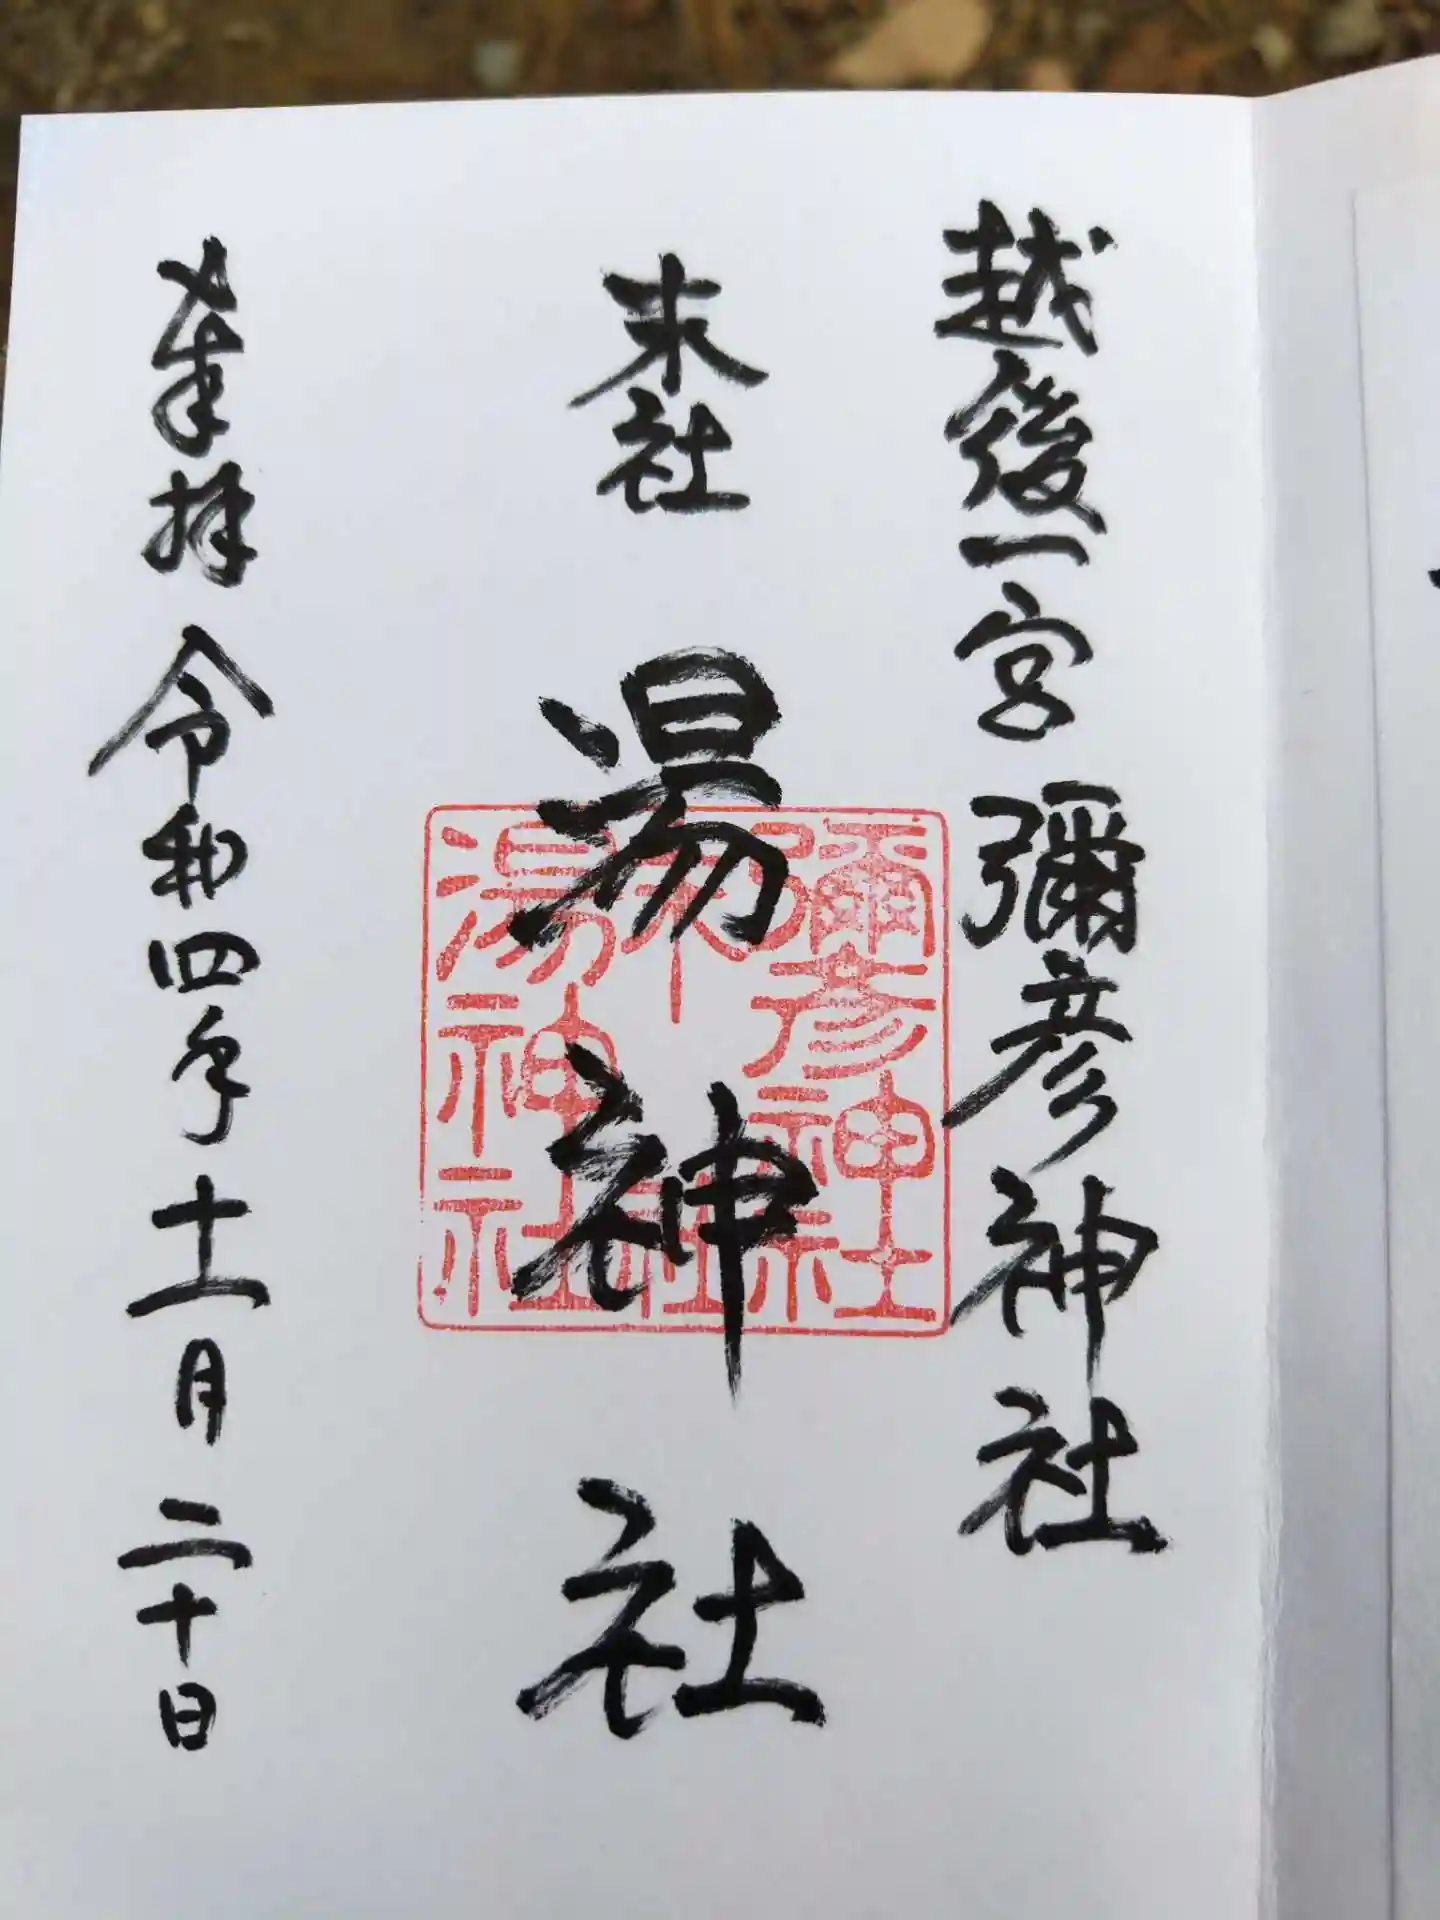 越後一宮 彌彦神社
末社
湯神社
奉拝 令和四年十一月二十日
彌彦神社
末社
湯神社